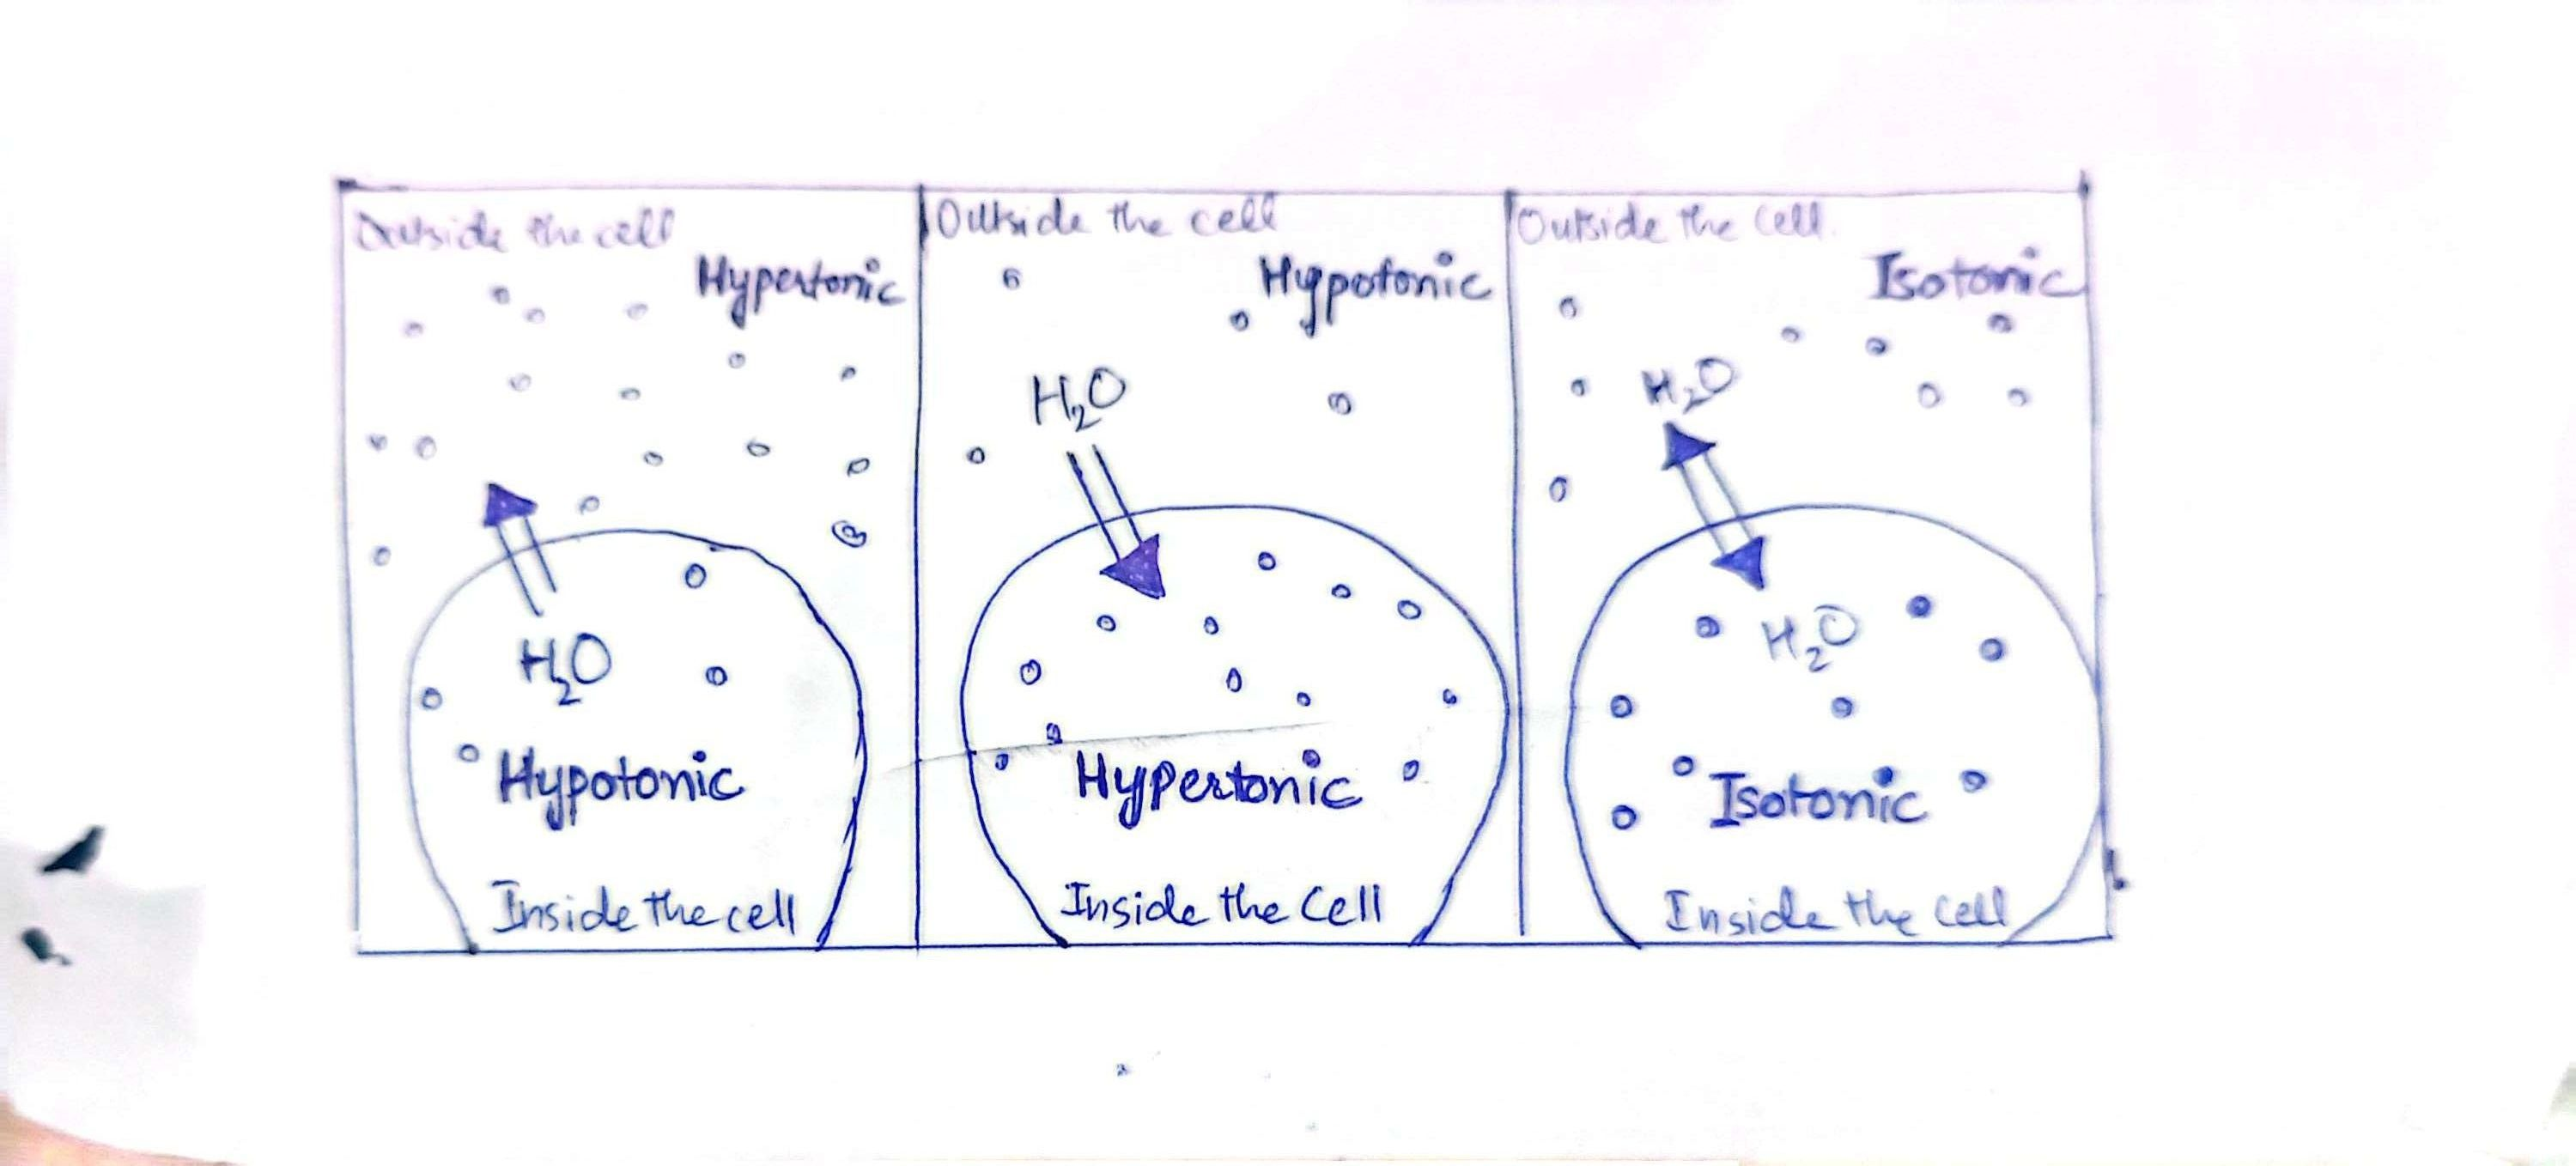 Outside the cell
Hypertonic
H₂O
Hypotonic
Inside the cell
Outside the cell
Hypotonic
H₂O
Hypertonic
Inside the Cell
Outside the cell.
Isotonic
H₂O
H₂O
Isotonic
Inside the cell